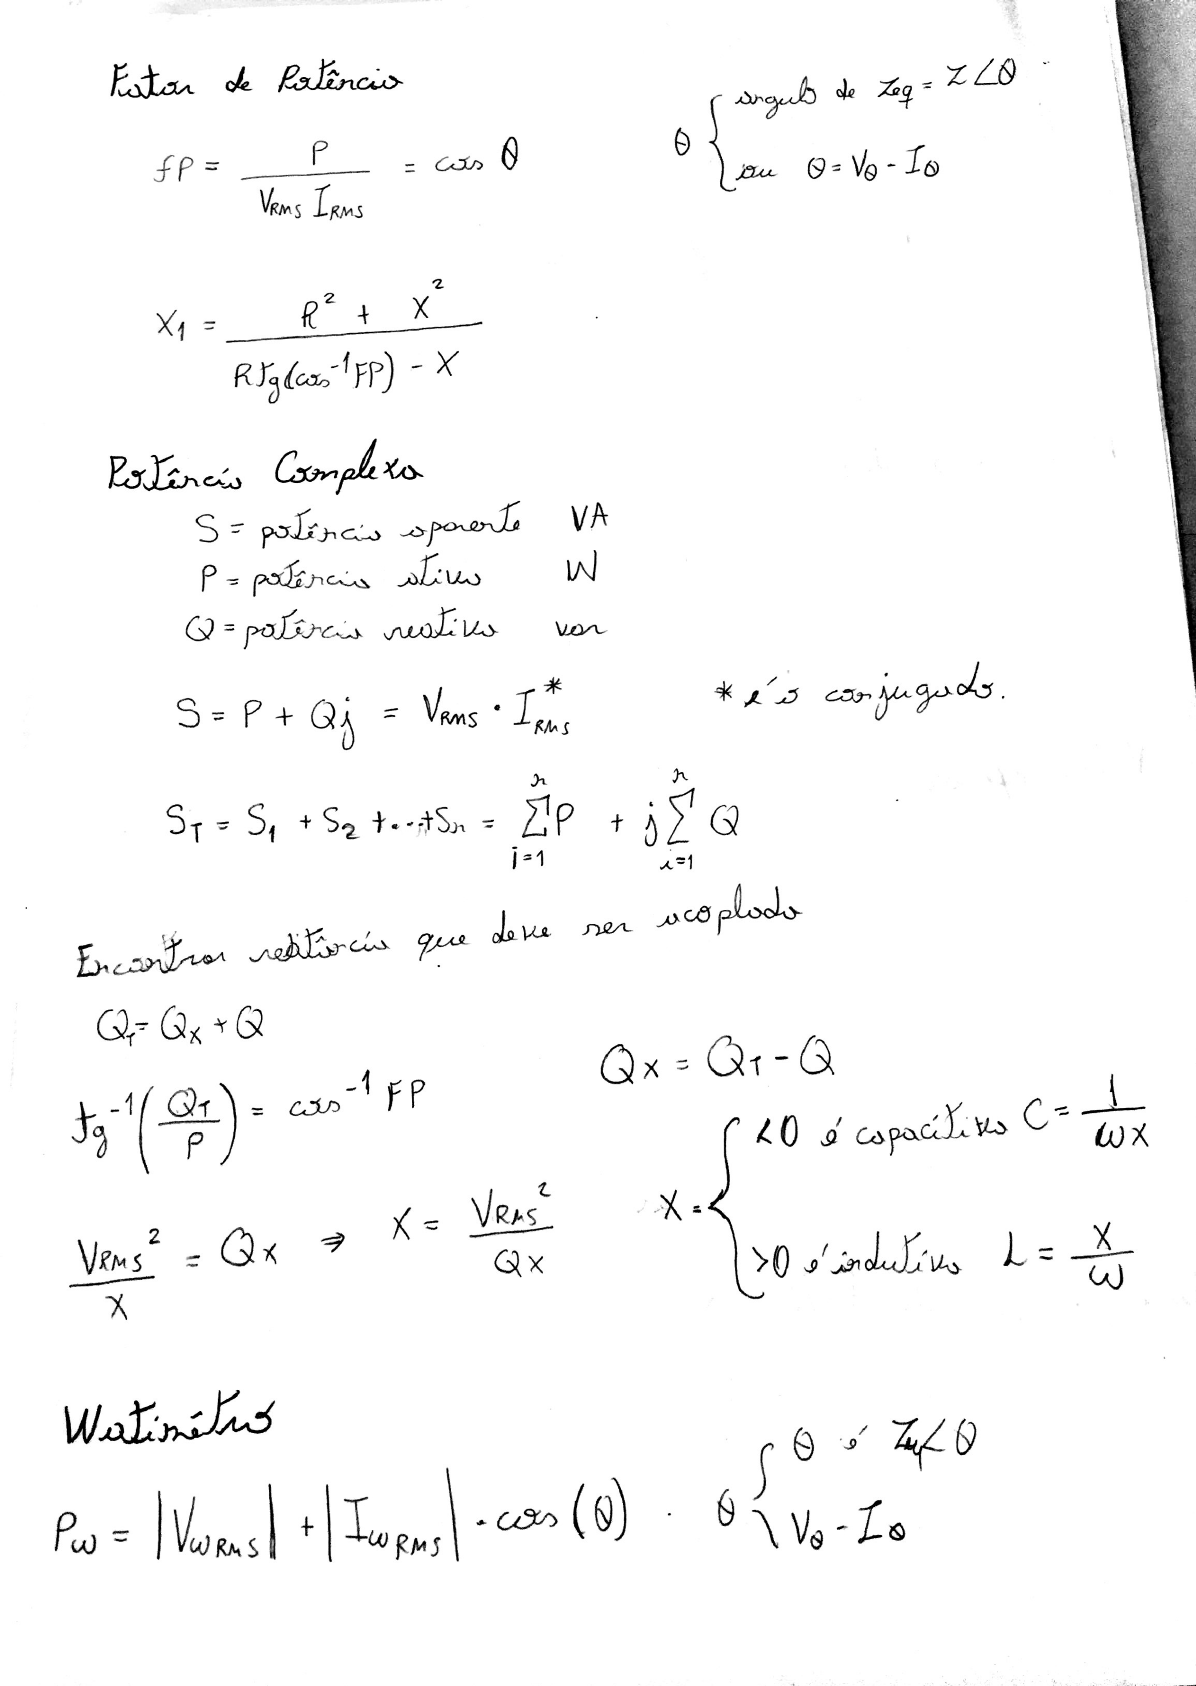 Fator de Potência
fP = P / (VRMS IRMS) = cos θ
θ { ângulo de Zeq = Z∠θ
ou θ = Vθ - Iθ
X1 = (R² + X²) / (R tg(cos⁻¹ FP) - X)
Potência Complexa
S = potência aparente VA
P = potência ativa W
Q = potência reativa var
S = P + Qj = VRMS · IRMS* * é o conjugado.
ST = S1 + S2 + ... + Sn = Σ(i=1, n) P + j Σ(i=1, n) Q
Encontrar reatância que deve ser acoplada
QT = QX + Q
QX = QT - Q
tg⁻¹(QT / P) = cos⁻¹ FP
X = { <0 é capacitiva C = 1 / ωX
>0 é indutiva L = X / ω
VRMS² / X = QX ⇒ X = VRMS² / QX
Watímetro
Pw = |VWRMS| + |IWRMS| · cos(θ) . θ { θ é Zeq∠θ
Vθ - Iθ